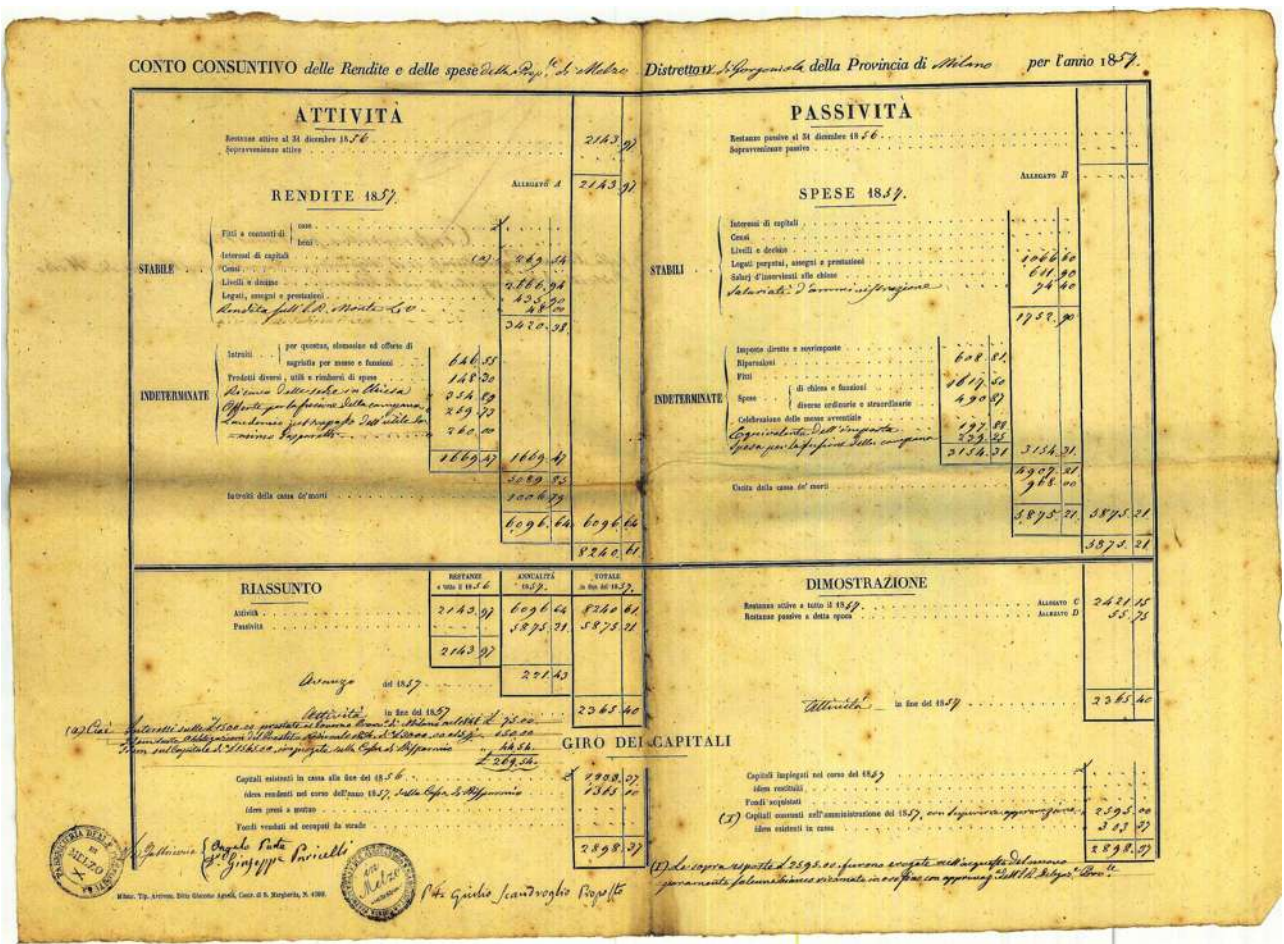 CONTO CONSUNTIVO delle Rendite e delle spese della Prop.le di Melzo Distretto IX di Gorgonzola della Provincia di Milano per l'anno 1857.
ATTIVITÀ
Restanze attive al 31 dicembre 1856 2143 97
Sopravvenienze attive
ALLEGATO A 2143 97
RENDITE 1857.
STABILE
Fitti a contanti di case
beni
Interessi di capitali (a) 269 54
Censi
Livelli e decime 2666 94
Legati, assegni e prestazioni 435 90
Rendita sull'I.R. Monte L.V. 48 00
3420 38
INDETERMINATE
Introiti per questue, elemosine ed offerte di
sagristia per messe e funzioni 646 55
Prodotti diversi, utili e rimborsi di spese 148 30
Ricavo delle sedie in Chiesa 354 89
Offerte per la fusione della campana 259 73
260 00
1669 47 1669 47
5089 85
Introiti della cassa de' morti 1006 79
6096 64 6096 64
8240 61
PASSIVITÀ
Restanze passive al 31 dicembre 1856
Sopravvenienze passive
ALLEGATO B
SPESE 1857.
STABILI
Interessi di capitali
Censi
Livelli e decime
Legati perpetui, assegni e prestazioni 1066 60
Salarj d'inservienti alle chiese 611 90
Salariati d'amministrazione 74 40
1752 90
INDETERMINATE
Imposte dirette e sovrimposte
Riparazioni 608 81
Fitti
Spese di chiesa e funzioni 1617 50
diverse ordinarie e straordinarie 490 87
Celebrazione delle messe avventizie
Equivalente dell'imposta 197 88
Spesa per la fusione della campana 239 25
3154 31 3154 31
4907 21
Uscita della cassa de' morti 968 00
5875 21 5875 21
5875 21
RIASSUNTO
RESTANZE a tutto il 1856 ANNUALITÀ 1857. TOTALE in fine del 1857.
Attività 2143 97 6096 64 8240 61
Passività 5875 21 5875 21
2143 97
Avanzo del 1857 221 43
Attività in fine del 1857 2365 40
DIMOSTRAZIONE
Restanze attive a tutto il 1857 ALLEGATO C 2421 15
Restanze passive a detta epoca ALLEGATO D 55 75
Attività in fine del 1857 2365 40
(a) Cioè Interessi sulle £ 1500 di Milano £ 75.00
150.00
Idem sul Capitale di £ 1365.00 sulla Cassa di Risparmio " 44.54
£ 269.54
GIRO DEI CAPITALI
Capitali esistenti in cassa alla fine del 1856 37
idem rendenti nel corso dell'anno 1857, dalla Cassa di Risparmio 1365 00
idem presi a mutuo
Fondi venduti ed occupati da strade
2898 37
Capitali impiegati nel corso del 1857
idem restituiti
Fondi acquistati
(X) Capitali consunti nell'amministrazione del 1857, con Superiore approvazione 2595 00
idem esistenti in cassa 303 37
2898 37
(X) Le sopra esposte £ 2595.00 furono erogate nell'acquisto del nuovo
paramento solenne bianco ricamato in oro fino con approvaz.e dell'I.R. Delegaz.e Prov.le
I Fabbricieri Angelo
Giuseppe
MELZO
in Melzo
P.te Giulio Scandroglio Proposto
Milano, Tip. Arcivesc. Ditta Giacomo Agnelli, Contr. di S. Margherita, N.